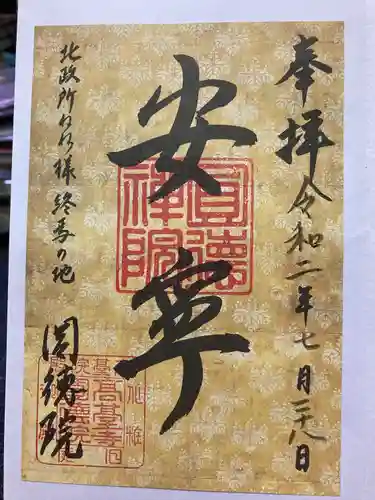 奉拝 令和二年七月二十八日
安寧
北政所ねね様 終焉の地
圓徳院
圓徳禅院